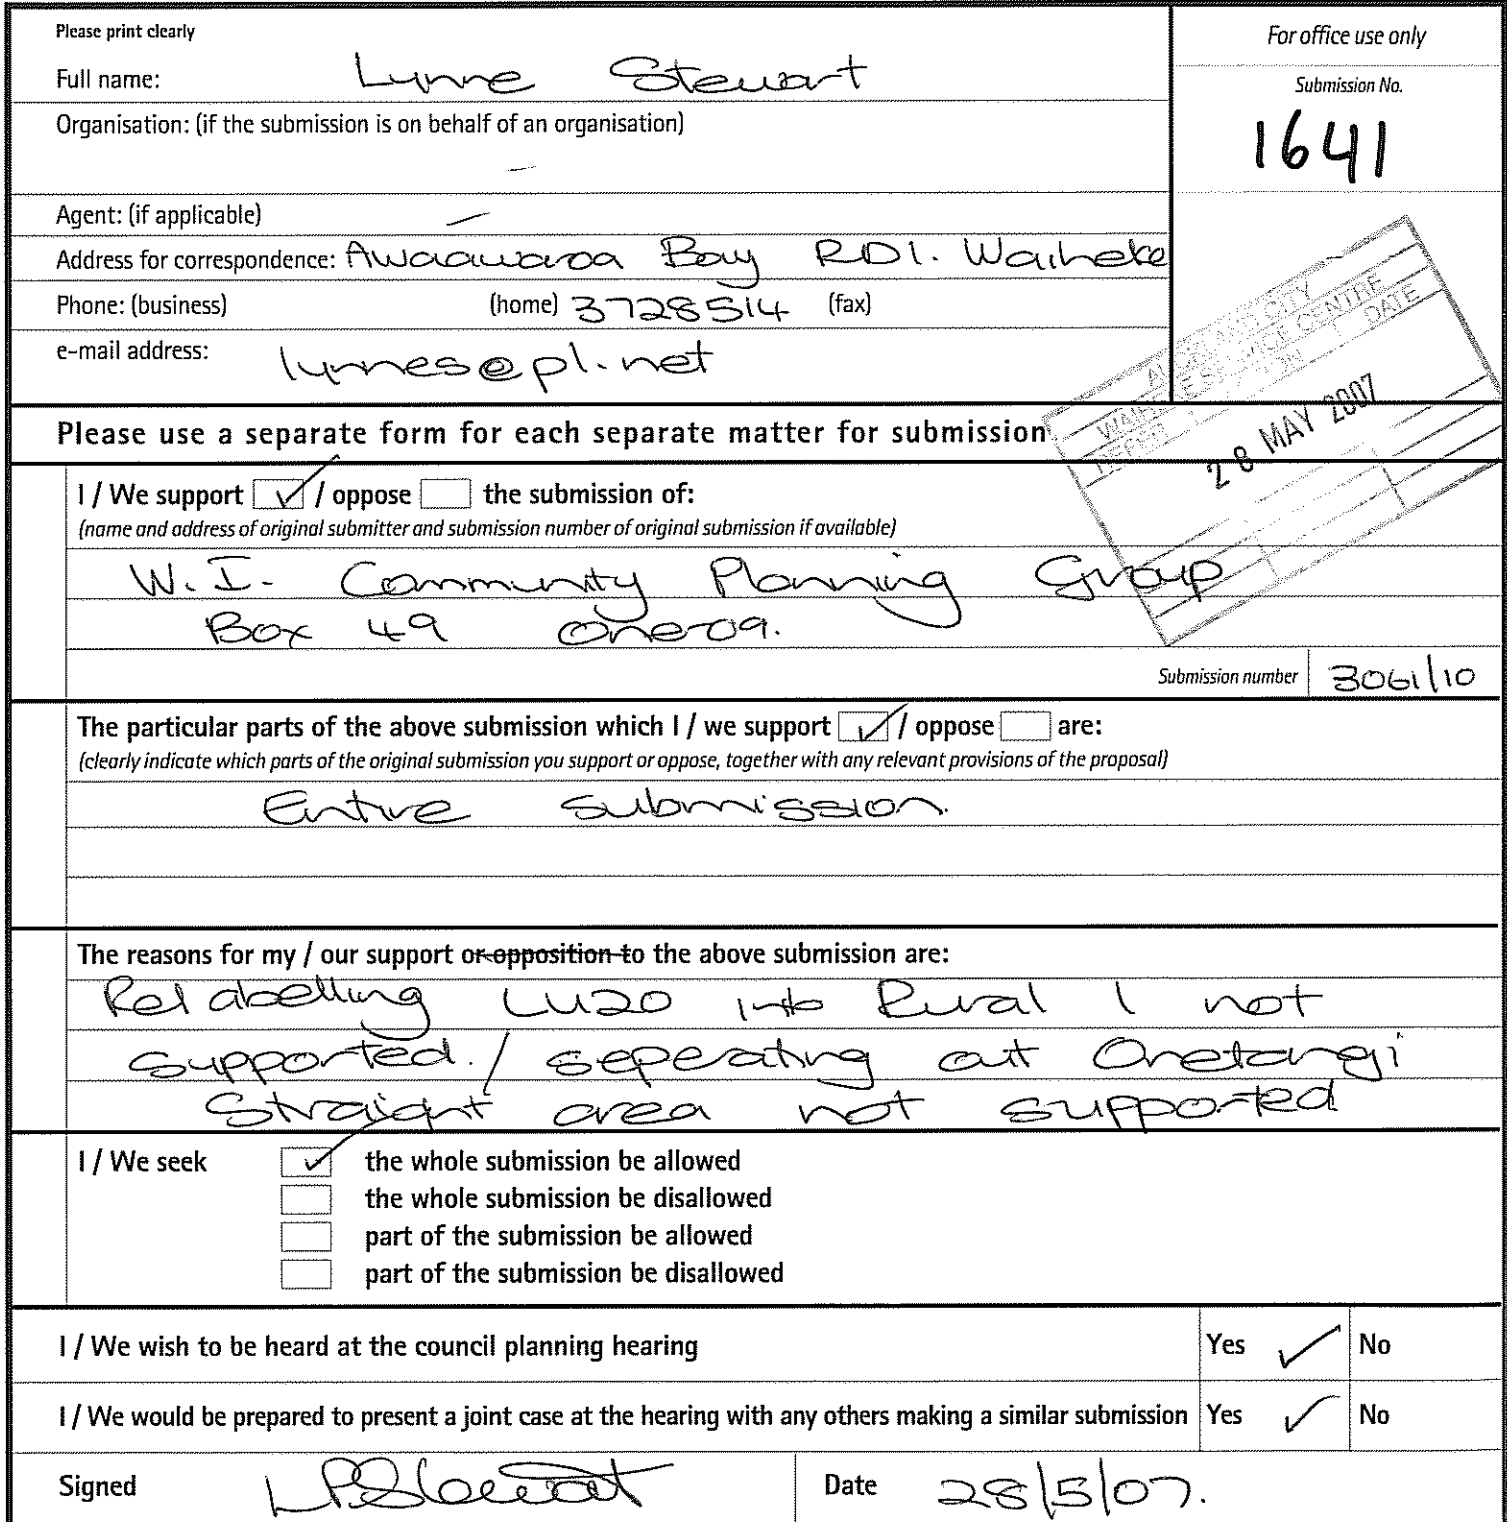 Please print clearly
For office use only
Full name: Lynne Stewart
Submission No.
1641
Organisation: (if the submission is on behalf of an organisation)
-
Agent: (if applicable) -
Address for correspondence: Awaawaroa Bay RD1. Waiheke
Phone: (business) (home) 3728514 (fax)
e-mail address: lynnes@pl.net
AUCKLAND CITY
WAIHEKE SERVICE CENTRE
DATE
28 MAY 2007
Please use a separate form for each separate matter for submission
I / We support ✓ / oppose the submission of:
(name and address of original submitter and submission number of original submission if available)
W.I. Community Planning Group
Box 49 Oneroa.
Submission number 3061/10
The particular parts of the above submission which I / we support ✓ / oppose are:
(clearly indicate which parts of the original submission you support or oppose, together with any relevant provisions of the proposal)
Entire submission.
The reasons for my / our support or opposition to the above submission are:
Relabelling LU20 into Rural 1 not
supported. / seperating out Onetangi
Straight area not supported
I / We seek ✓ the whole submission be allowed
the whole submission be disallowed
part of the submission be allowed
part of the submission be disallowed
I / We wish to be heard at the council planning hearing Yes ✓ No
I / We would be prepared to present a joint case at the hearing with any others making a similar submission Yes ✓ No
Signed LPStewart Date 28/5/07.